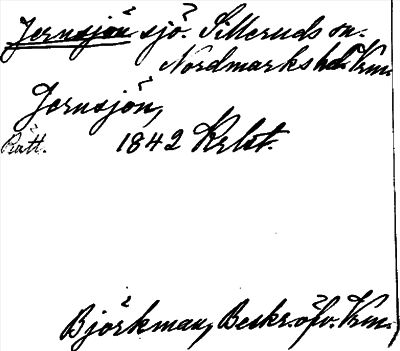 Jernsjön sjö. Silleruds sn.
Nordmarks hd. Vrm.
Jernsjön,
Rätt. 1842 Krlst.
Björkman, Beskr. öfv. Vrm.,